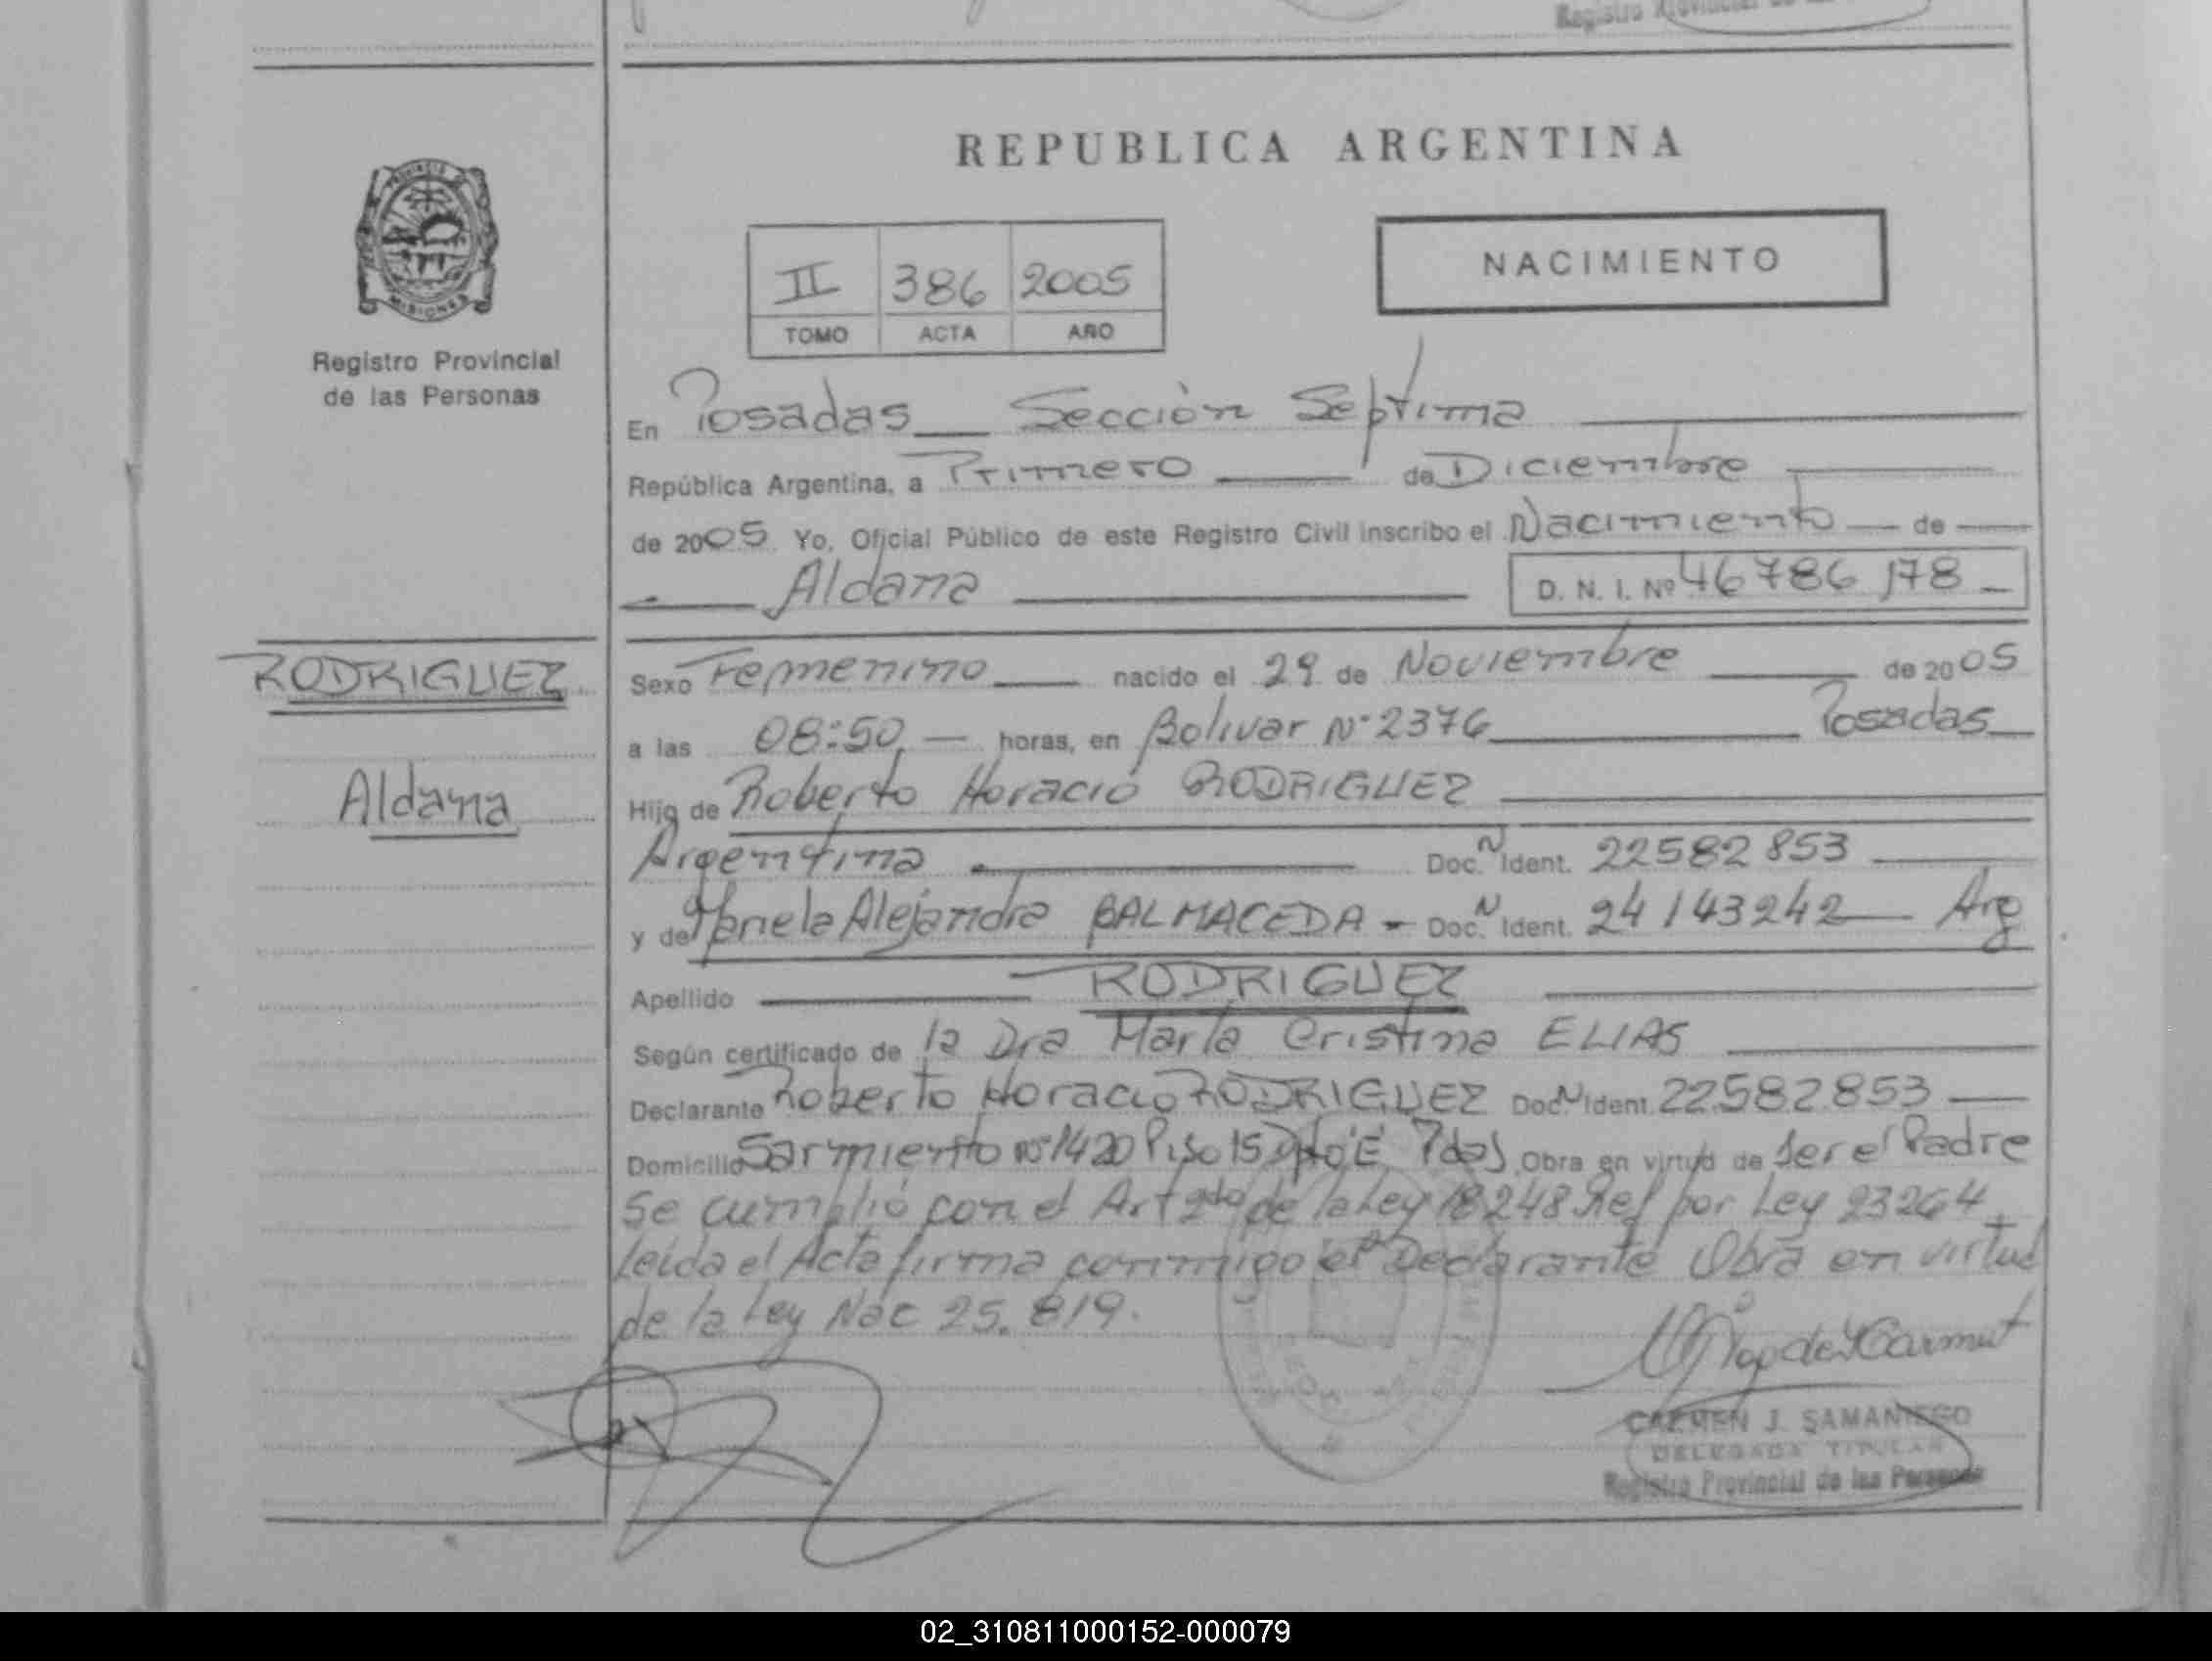 Registro Provincial de las
REPUBLICA ARGENTINA
PROVINCIA DE
MISIONES
Registro Provincial
de las Personas
NACIMIENTO
II 386 2005
TOMO ACTA AÑO
En Posadas Sección Septima
República Argentina, a Primero de Diciembre
de 2005 Yo, Oficial Público de este Registro Civil inscribo el Nacimiento de
Aldana D. N. I. Nº 46786178
RODRIGUEZ
Aldana
Sexo Femenino nacido el 29 de Noviembre de 2005
a las 08:50 horas, en Bolivar Nº 2376 Posadas
Hijo de Roberto Horacio RODRIGUEZ
Argentina Doc. N Ident. 22582853
y de Mariela Alejandra BALMACEDA Doc. N Ident. 24143242 Arg
Apellido RODRIGUEZ
Según certificado de la Dra María Cristina ELIAS
Declarante Roberto Horacio RODRIGUEZ Doc. N Ident. 22582853
Domicilio Sarmiento nº 1420 Piso 15 Dpto "E" Pdas Obra en virtud de ser el Padre
Se cumplió con el Art 2do de la Ley 18248 Ref por Ley 23264
Leida el Acta firma conmigo el Declarante Obra en virtud
de la Ley Nac 25.819.
CARMEN J. SAMANIEGO
DELEGADA TITULAR
Registro Provincial de las Personas
02_310811000152-000079